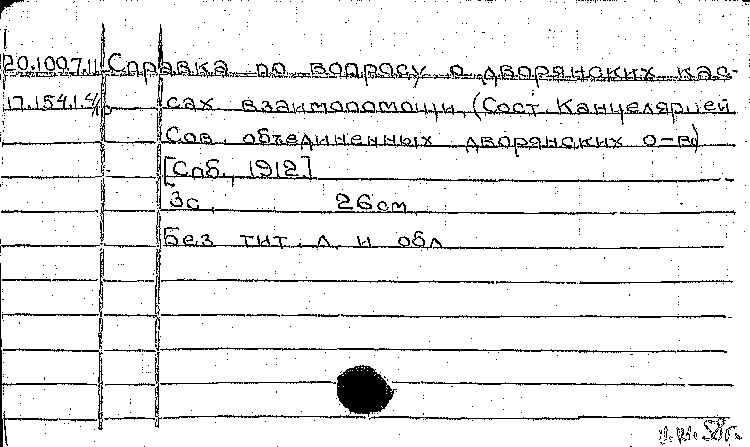 20.100.7.11 Справка по вопросу о дворянских кас-
17.154.1.4 сах взаимопомощи (Сост. Канцелярией
Сов. объединенных дворянских о-в)
[Спб., 1912]
3 с. 26 см
Без тит. л. и обл.